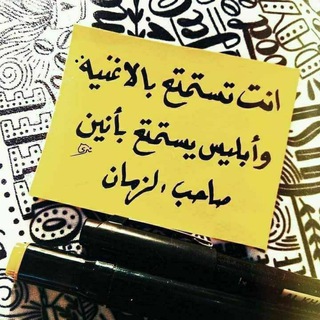 انت تستمتع بالاغنية
وأبليس يستمتع بأنين
صاحب الزمان